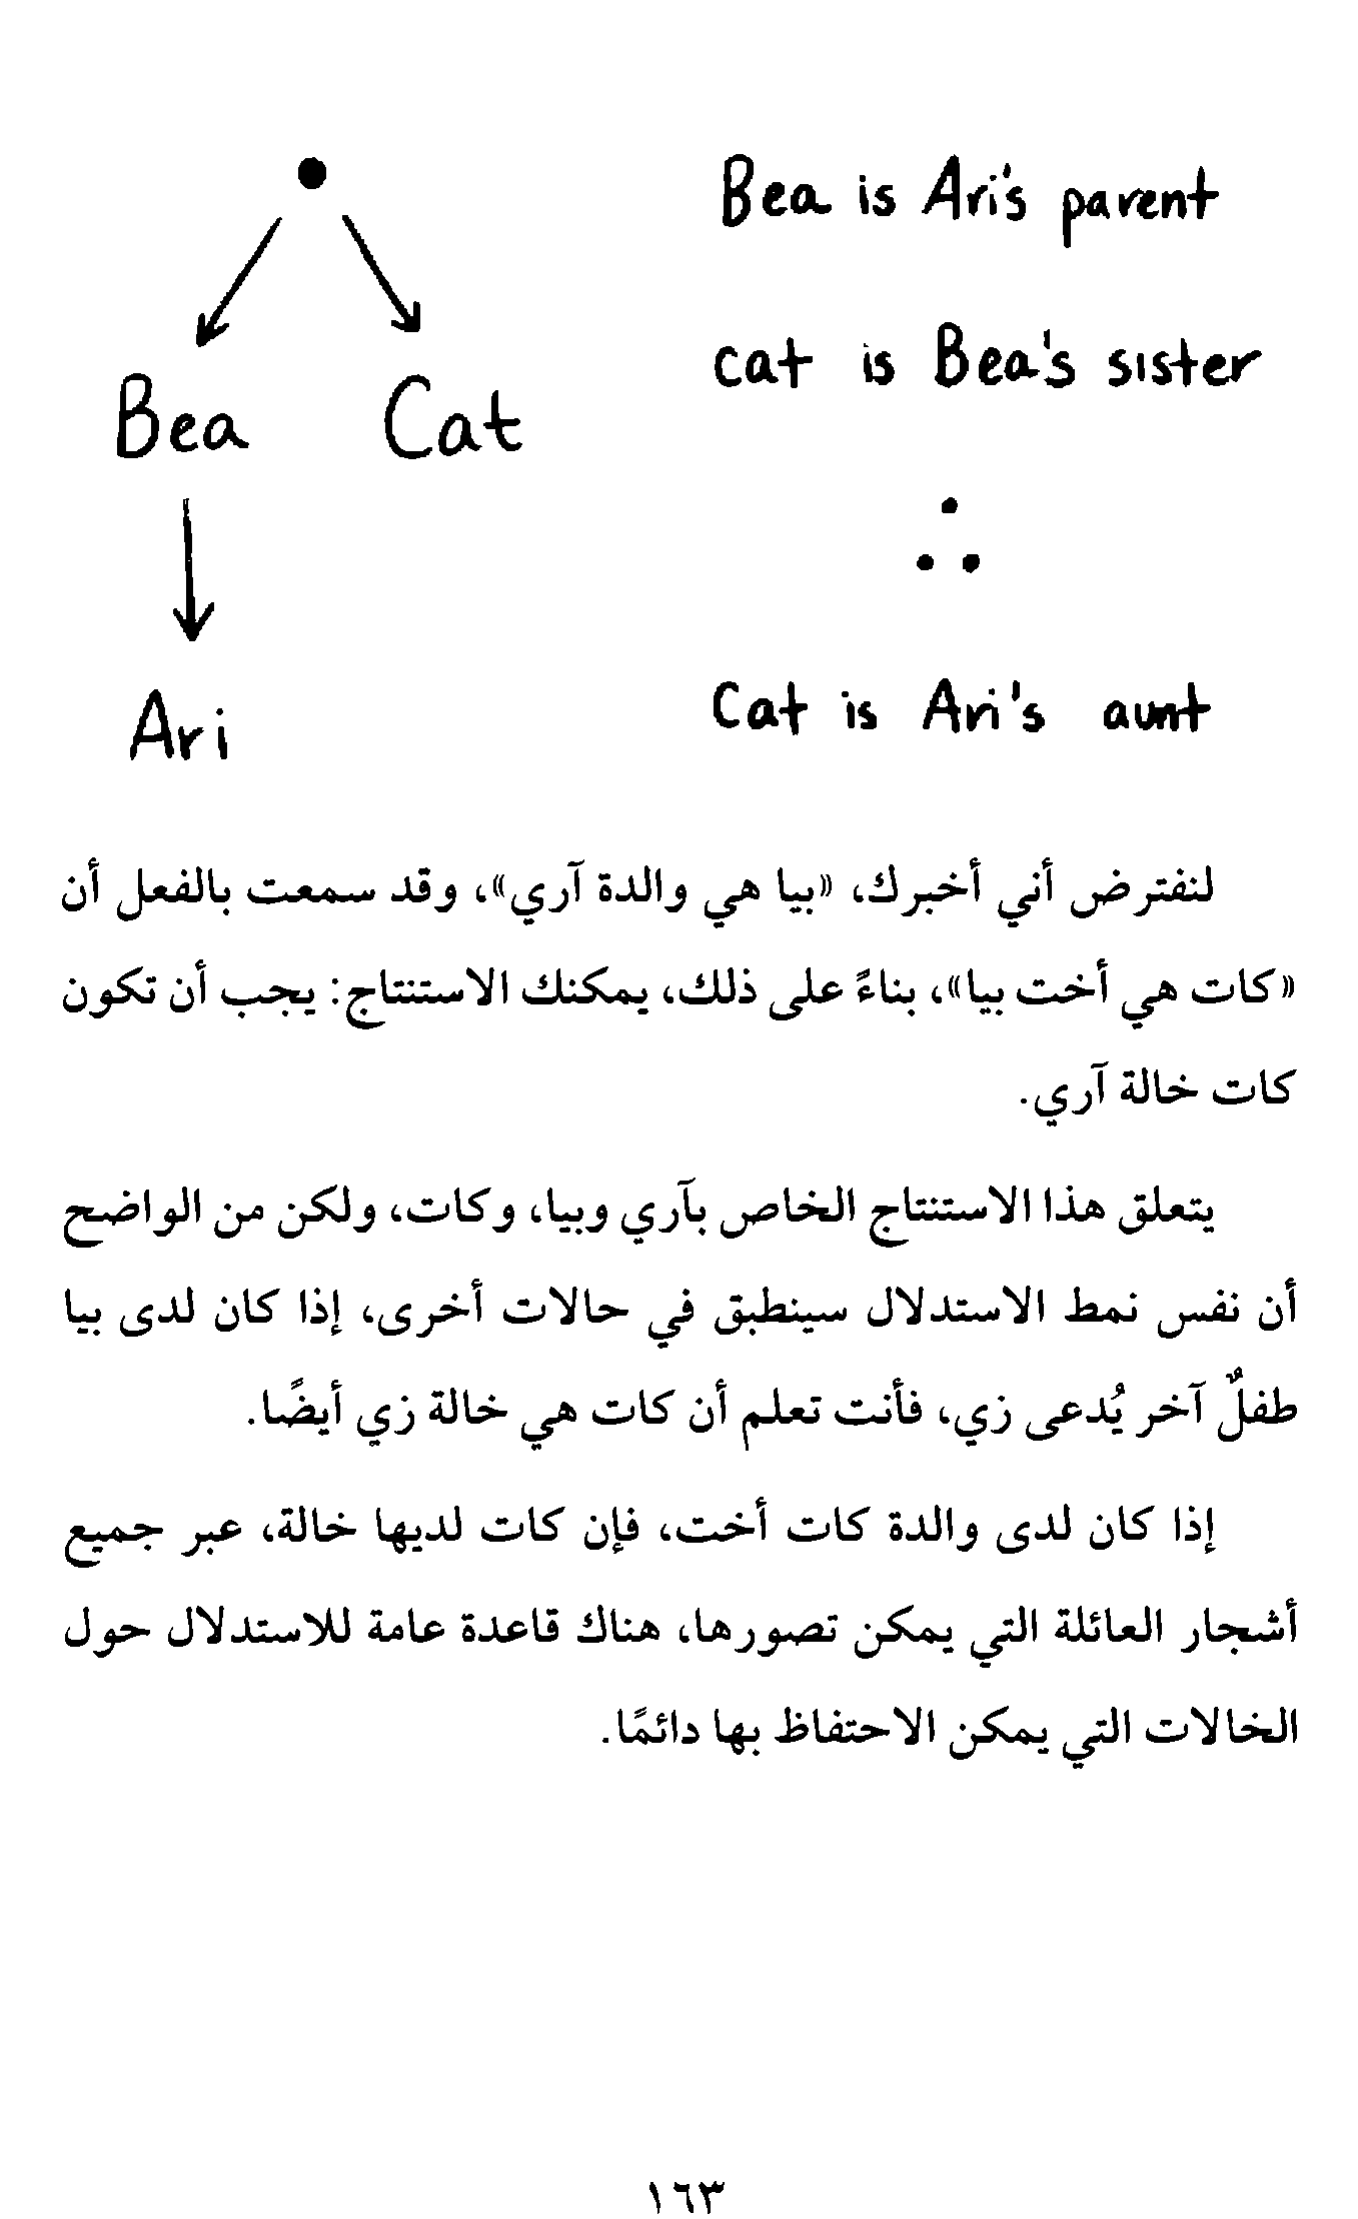 Bea is Ari's parent
cat is Bea's sister
Bea Cat
∴
Ari
Cat is Ari's aunt
لنفترض أني أخبرك، «بيا هي والدة آري»، وقد سمعت بالفعل أن
«كات هي أخت بيا»، بناءً على ذلك، يمكنك الاستنتاج: يجب أن تكون
كات خالة آري.
يتعلق هذا الاستنتاج الخاص بآري وبيا، وكات، ولكن من الواضح
أن نفس نمط الاستدلال سينطبق في حالات أخرى، إذا كان لدى بيا
طفلٌ آخر يُدعى زي، فأنت تعلم أن كات هي خالة زي أيضًا.
إذا كان لدى والدة كات أخت، فإن كات لديها خالة، عبر جميع
أشجار العائلة التي يمكن تصورها، هناك قاعدة عامة للاستدلال حول
الخالات التي يمكن الاحتفاظ بها دائمًا.
١٦٣